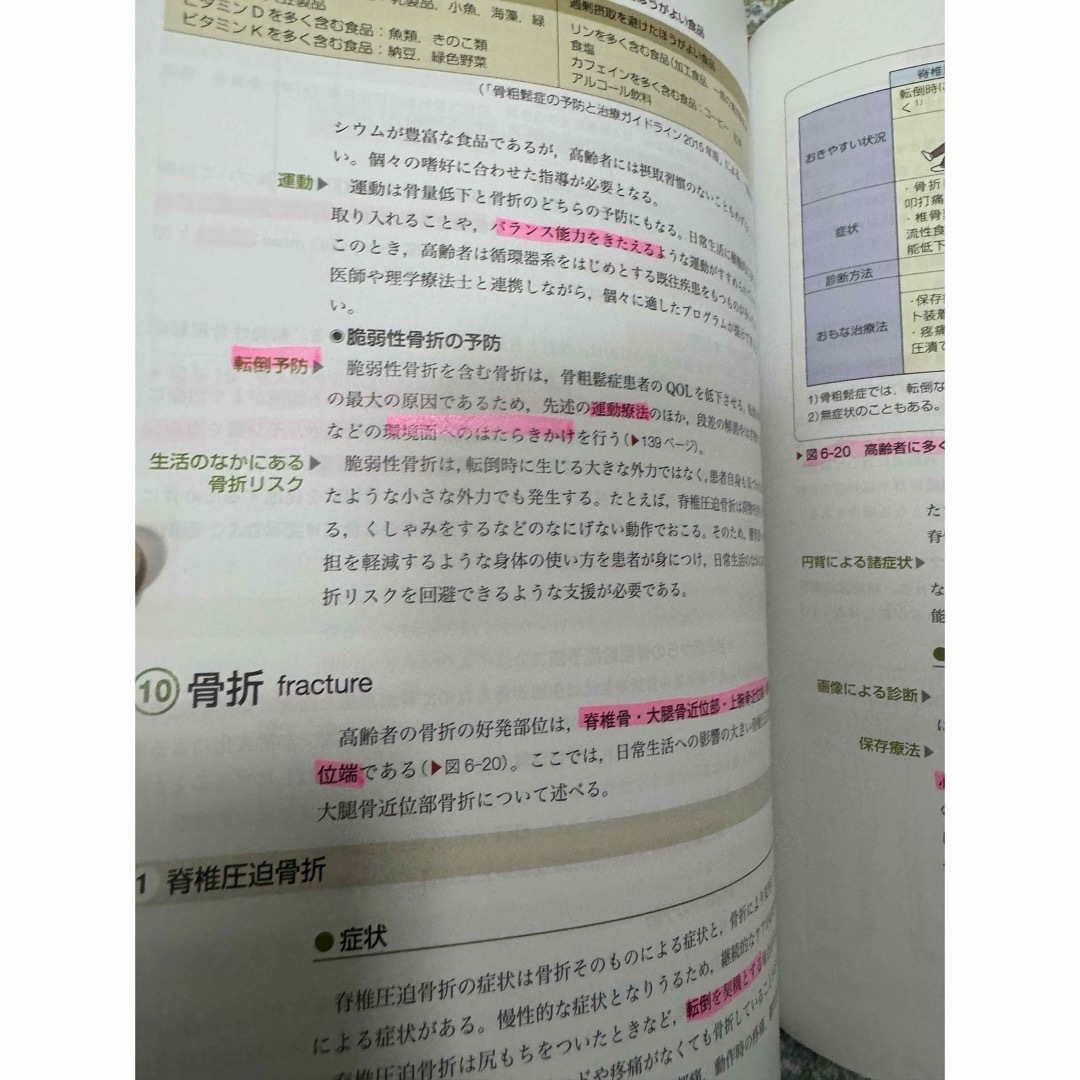 乳製品，小魚，海藻，緑
ビタミンDを多く含む食品：魚類，きのこ類
ビタミンKを多く含む食品：納豆，緑色野菜
過剰摂取を避けたほうがよい食品
リンを多く含む食品（加工食品，
食塩
カフェインを多く含む食品：コーヒー
アルコール飲料
（「骨粗鬆症の予防と治療ガイドライン2015年版」による
シウムが豊富な食品であるが，高齢者には摂取習慣のないことも
い。個々の嗜好に合わせた指導が必要となる。
運動▶ 運動は骨量低下と骨折のどちらの予防にもなる。日常生活に
取り入れることや，バランス能力をきたえるような運動がすすめられ
このとき，高齢者は循環器系をはじめとする既往疾患をもつ
医師や理学療法士と連携しながら，個々に適したプログラムが
い。
◉脆弱性骨折の予防
転倒予防▶ 脆弱性骨折を含む骨折は，骨粗鬆症患者のQOLを低下させる。
の最大の原因であるため，先述の運動療法のほか，段差の解消や
などの環境面へのはたらきかけを行う（▶139ページ）。
生活のなかにある▶ 脆弱性骨折は，転倒時に生じる大きな外力ではなく，患者自身も
骨折リスク
たような小さな外力でも発生する。たとえば，脊椎圧迫骨折は
る，くしゃみをするなどのなにげない動作でおこる。そのため，
担を軽減するような身体の使い方を患者が身につけ，日常生活の
折リスクを回避できるような支援が必要である。
10 骨折 fracture
高齢者の骨折の好発部位は，脊椎骨・大腿骨近位部・上腕骨近位
位端である（▶図6-20）。ここでは，日常生活への影響の大きい
大腿骨近位部骨折について述べる。
1 脊椎圧迫骨折
●症状
脊椎圧迫骨折の症状は骨折そのものによる症状と，骨折により
による症状がある。慢性的な症状となりうるため，継続的なケア
脊椎圧迫骨折は尻もちをついたときなど，転倒を契機とする
や疼痛がなくても骨折していること
動作時の疼痛，
脊椎
おきやすい状況
転倒時に
く1)
症状
・骨折
叩打痛
・椎骨
流性食
能低下
診断方法
おもな治療法
・保存
ト装着
・疼痛
圧潰で
1）骨粗鬆症では，転倒な
2）無症状のこともある。
▶図6-20 高齢者に多く
た
脊
円背による諸症状▶
な
能
画像による診断▶
に
保存療法▶